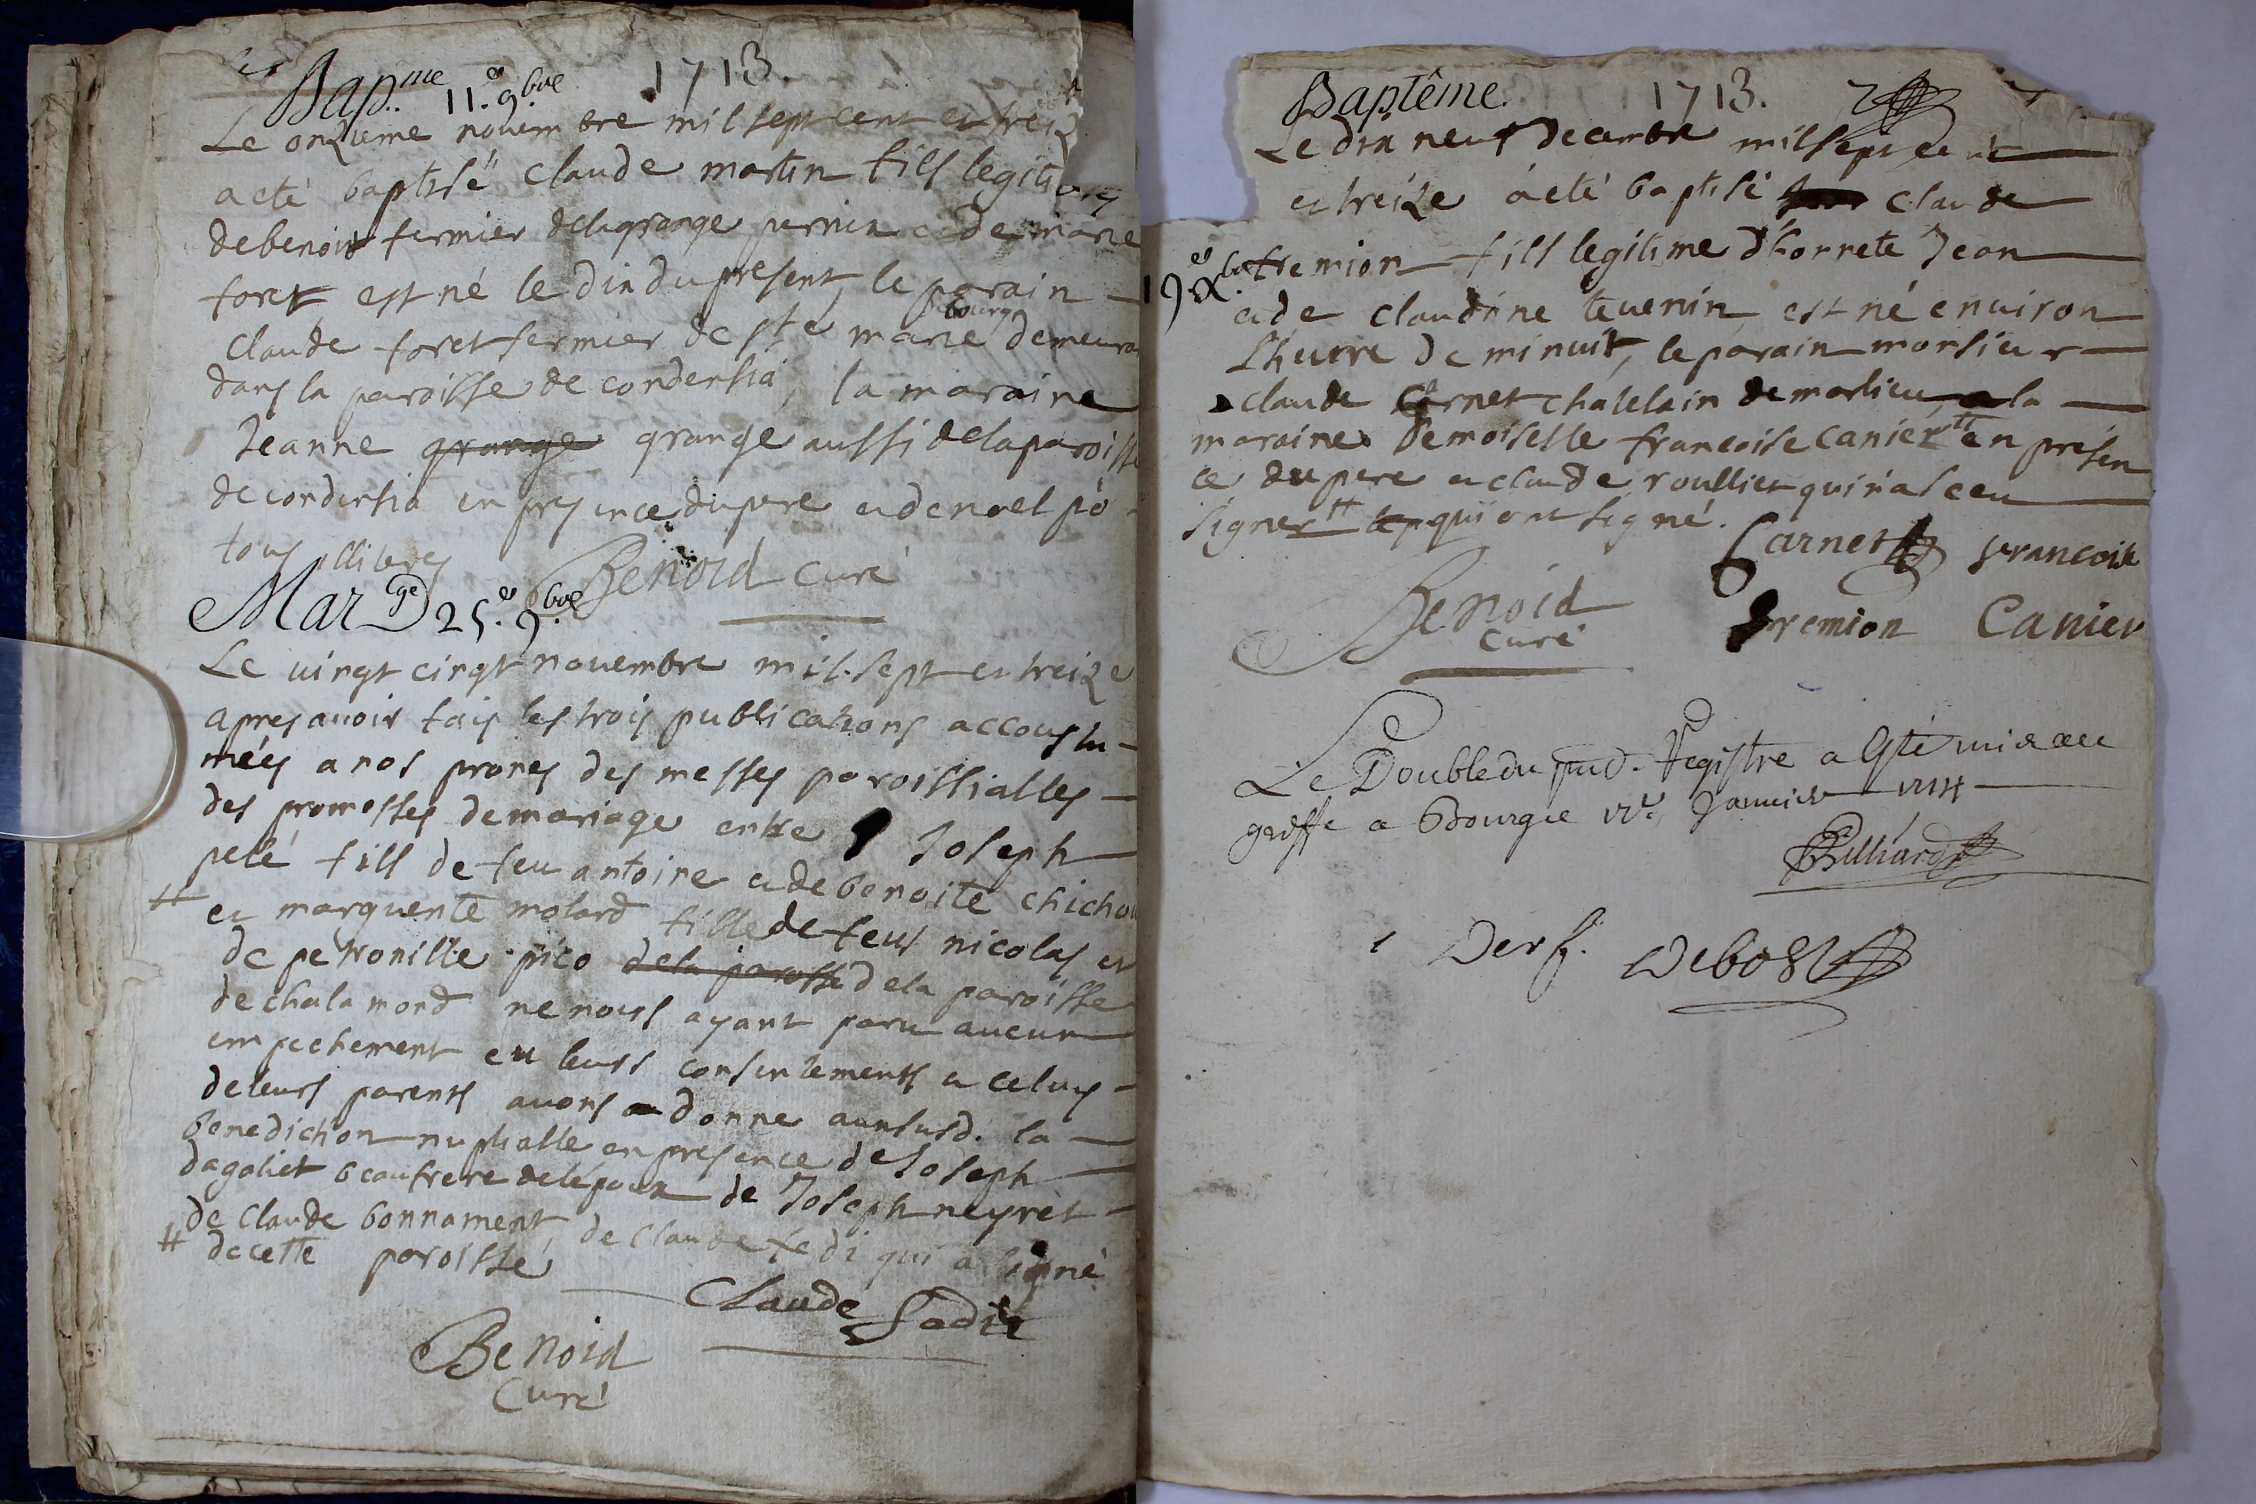 Bap.me 11.e 9.bre 1713.
Le onzieme novembre mil sept cent et treiz
a eté baptisé claude martin fills legiti
de benoit fermier de la grange pernin et de marie
foret, est né le dix du present, le parain
claude foret fermier de ste marie demeura
dubourg
dans la paroisse de condensia, la maraine
Jeanne grange grange aussi de la paroisse
de condensia en presence du pere et de noel
tous illiteres
Benoid curé
Mar.ge D 25.e 9.bre
Le vingt cinqt novembre mil sept et treize
apres avoir fais les trois publications accoustu-
meés a nos prones des messes paroissialles
des promosses de mariage entre Joseph
pelé fill de feu antoine et de benoite chichou
# et marguerite molard fille de feus nicolas et
de petronille pico de la paroisse de la paroisse
de chalamond ne nous ayant paru aucun
empechement eu leurs consentements et celuy
de leurs parents avons donne aux susd. la
benediction nuptialle en presence de Joseph
dagaliet beaufrere de lépoux de Joseph neyret
de claude bonnament, de claude fedi qui a signé
# de cette paroisse
Claude fadis
Benoid
Curé
Baptême. 1713.
Le dix neuf decembre mil sept cent
et treize a eté baptisé claude
19.e X.bre fremion fills legitime d'honnete Jean
et de claudine tevenin, est né environ
l'heure de minuit, le parain monsieur
claude Carnet chatelain de marlieu, la
maraine demoiselle francoise canier # en presen
ce du pere et claude roullier qui n'a sceu
signer # qui ont signé.
Carnet francoise
Benoid fremion Canier
curé
Le Double du pnt. Registre a esté mis au
greffe a Bourg le Janvier 1714
Billiard
Debost